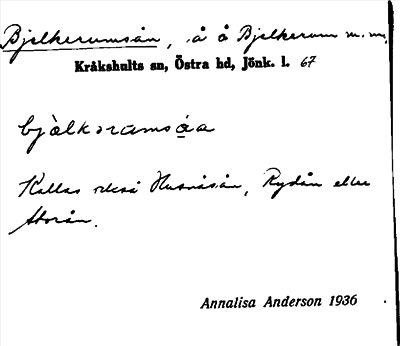 Bjelkerumsån, å å Bjelkerum m.m.
Kråkshults sn, Östra hd, Jönk. l. 67
bjälkoramsåa
Kallas också Husnäsån, Rydån eller
Storån.
Annalisa Anderson 1936